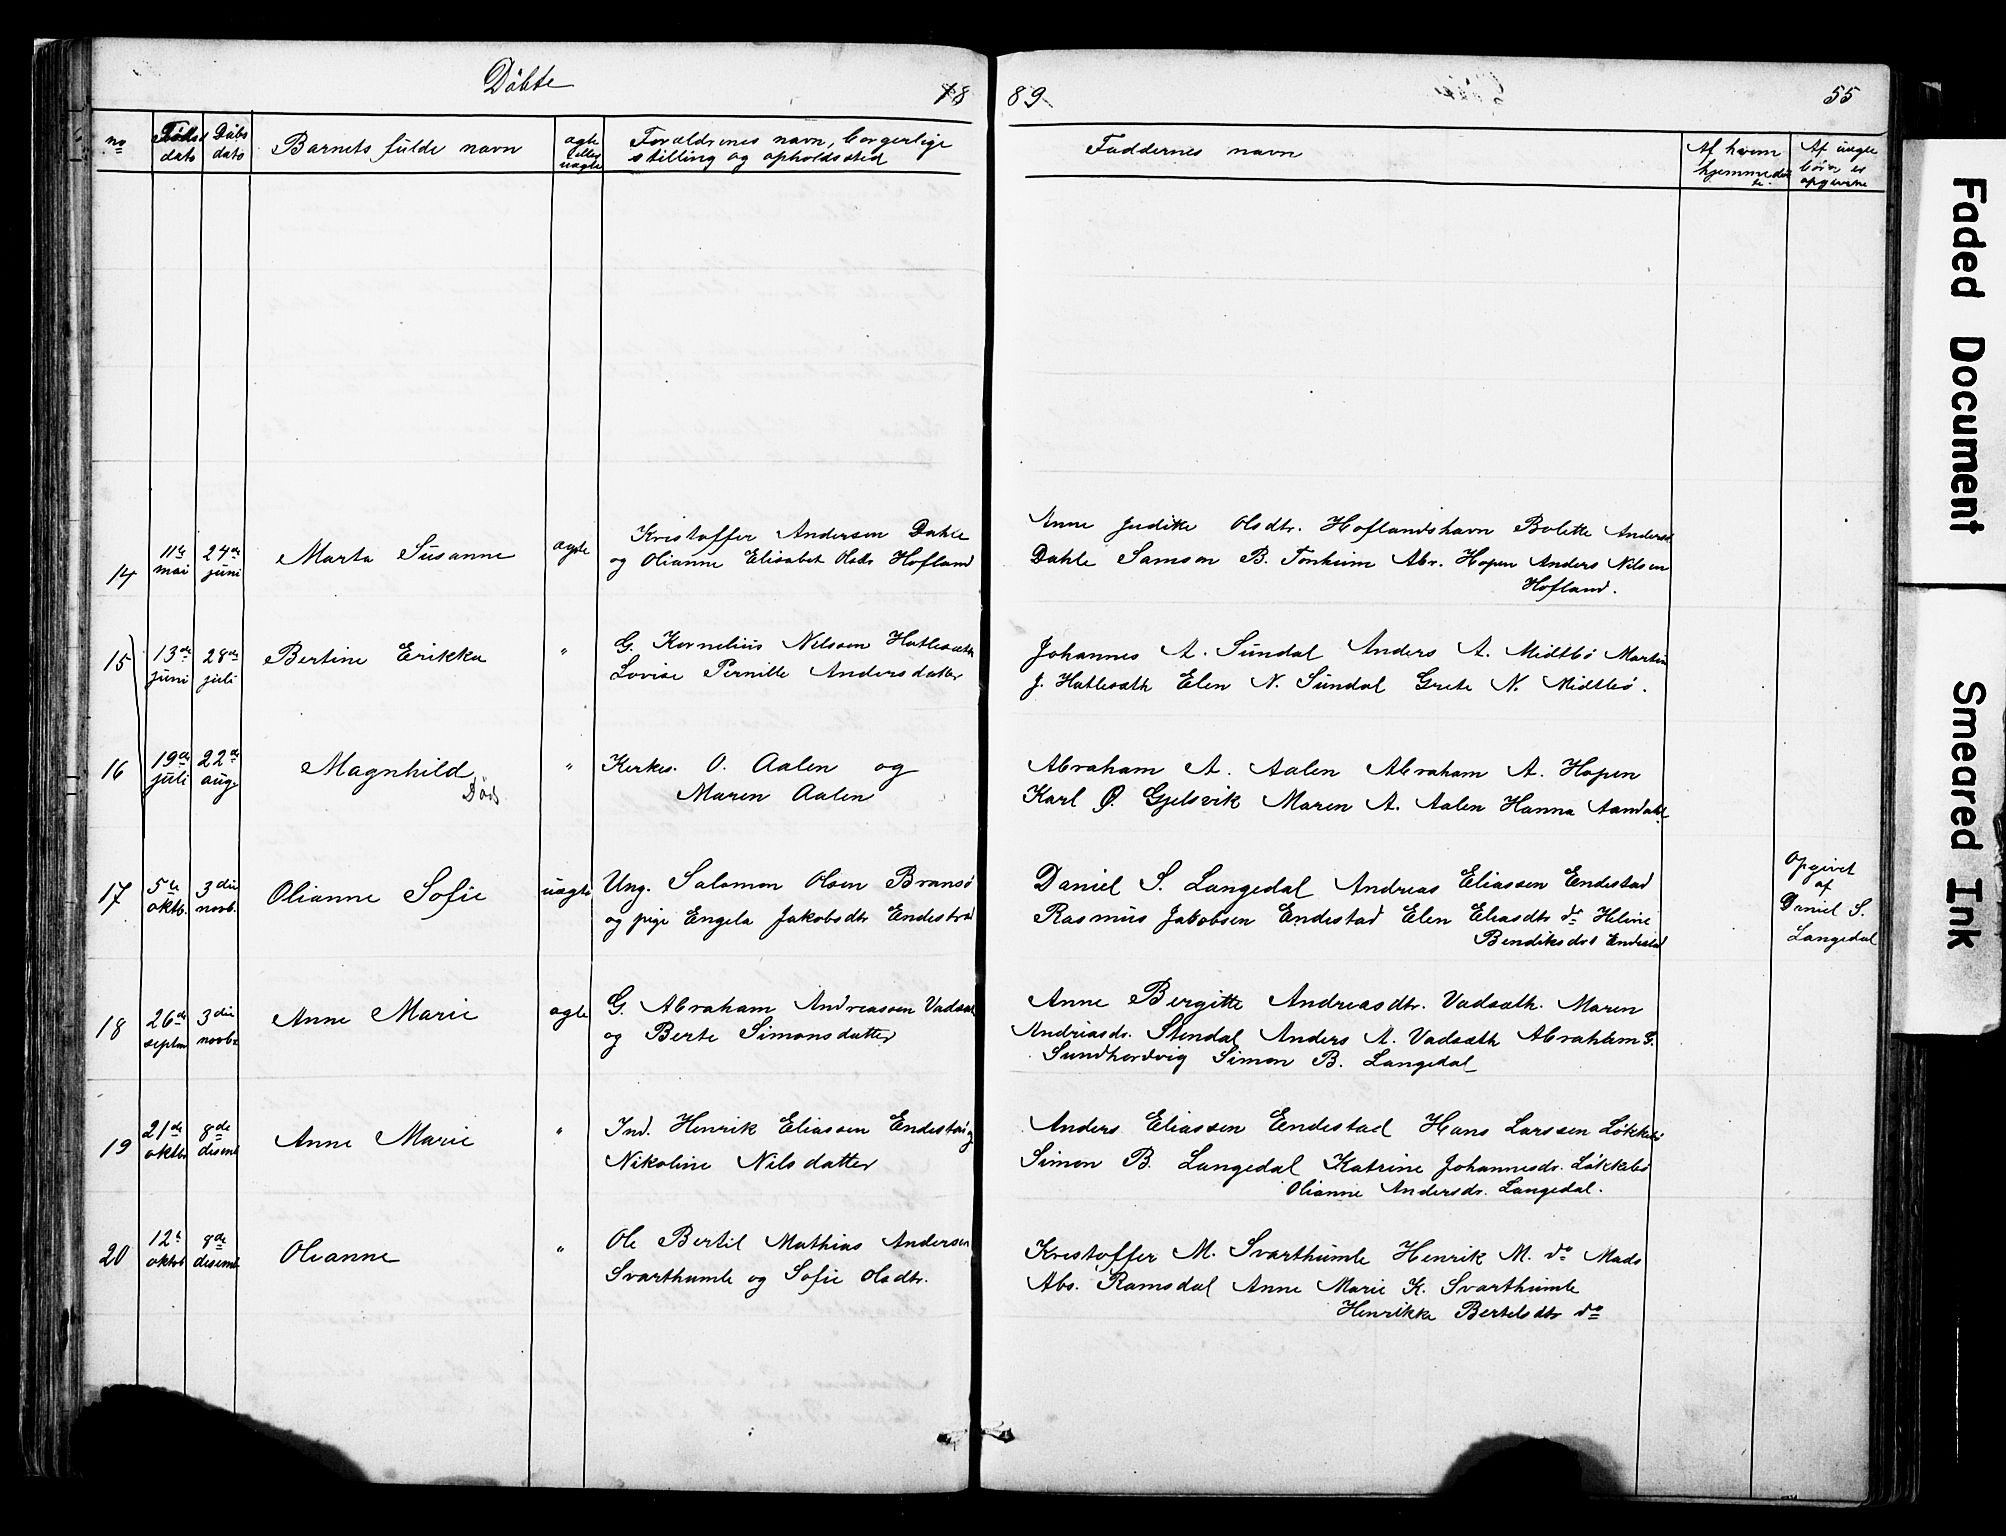 Döbte 18 89 55
no Föds dato Döbs dato Barnets fulde navn ægte eller uægte Forældrenes navn, borgerlige stilling og opholdssted Faddernes navn Af hvem hjemmedöbt Af uægte börn er opgivne
14 11te mai 24de juni Marta Susanne ægte
Kristoffer Andersen Dahle
og Olianne Elisabet Olsdr Hofland
Anne Judikke Olsdtr. Hoflandshavn Bolette Anders
Dahle Samson B. Tonheim Abr. Hopen Anders Nilsen
Hofland.
15 13de juni 28de juli Bertine Erikka "
G. Kornelius Nilsson Hatlesæth
Lovise Pernille Andersdatter
Johannes A. Sundal Anders A. Midtbö Martin
J. Hatlesæth Elen N. Sundal Grete N. Midtbö.
16 19de juli 22de aug. Magnhild "
Död
Kirkes. O. Aalen og
Maren Aalen
Abraham A. Aalen Abraham A. Hopen
Karl Ø. Gjelsvik Maren A. Aalen Hanna Aamdahl
17 5te oktb. 3die novb. Olianne Sofie uægte
Ung. Salamon Olsen Bransö
og pige Engela Jakobsdtr Endestad
Daniel S. Langedal Andreas Eliassen Endestad
Rasmus Jakobsen Endestad Elen Eliasdtr do Heline
Bendiksdtr Endestad
Opgivet
af
Daniel S.
Langedal
18 26de septm 3die novb. Anne Marie ægte
G. Abraham Andreassen Vadsæt
og Berte Simonsdatter
Anne Bergitte Andreasdtr. Vadsæth. Maren
Andreasdr. Stendal Anders A. Vadsæth Abraham G.
Sundhordvig Simon B. Langedal
19 21de oktbr 8de desemb Anne Marie "
Ind. Henrik Eliassen Endestad og
Nikoline Nilsdatter
Anders Eliassen Endestad Hans Larssen Løkkebö
Simon B. Langedal Katrine Johannesdr. Løkkebö
Olianne Andersdr. Langedal.
20 12te oktob 8de desemb Olianne "
Ole Bertil Mathias Andersen
Svarthumle og Sofie Olsdtr.
Kristoffer M. Svarthumle Henrik M. do Mads
Abs. Ramsdal Anne Marie K. Svarthumle
Henrikke Bertelsdtr do
Faded Document
Smeared Ink